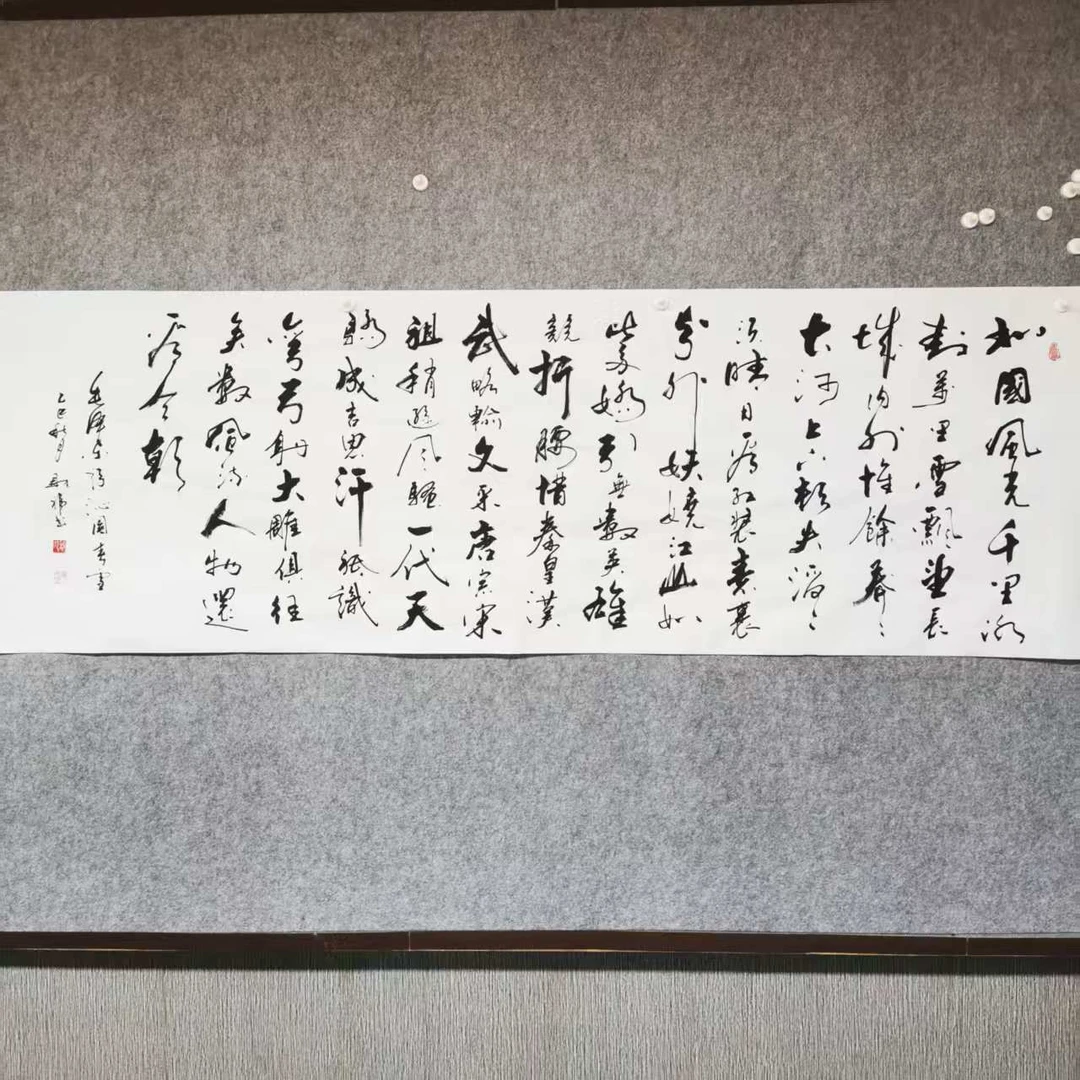 北國風光千里冰
封萬里雪飄望長
城內外惟餘莽々
大河上下頓失滔々
須晴日看紅裝素裹
分外妖嬈江山如
此多嬌引無數英雄
競折腰惜秦皇漢
武略輸文采唐宗宋
祖稍遜風騷一代天
驕成吉思汗祇識
彎弓射大雕俱往
矣數風流人物還
看今朝
毛澤東詞沁園春雪
乙巳秋月